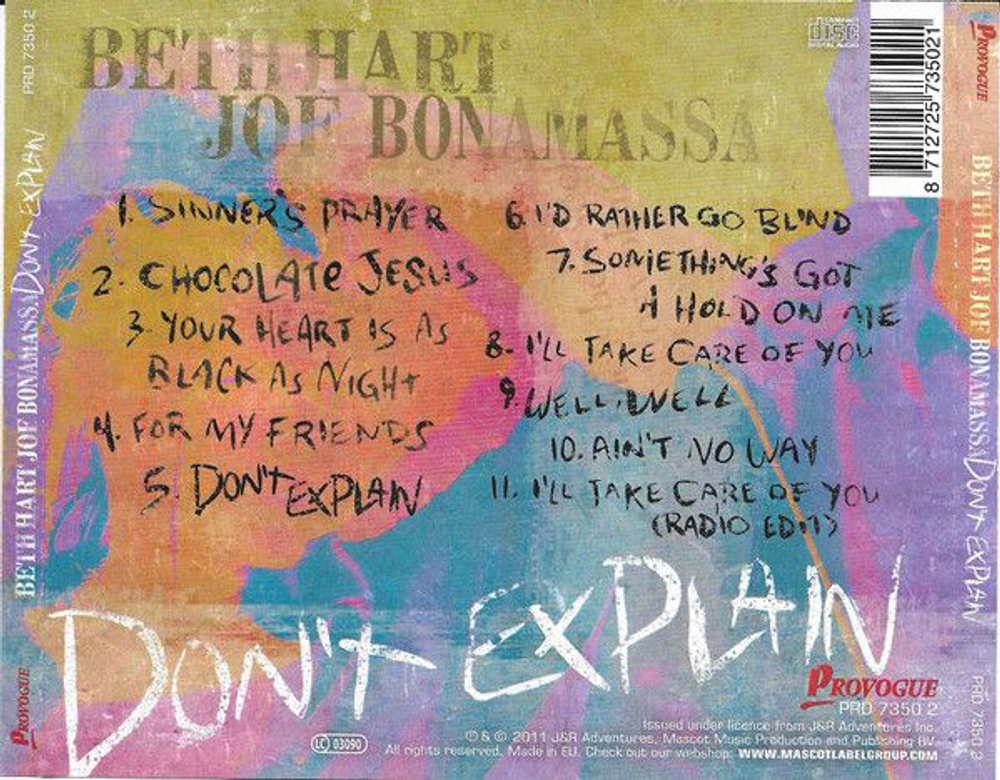 PRD 7350 2
BETH HART JOE BONAMASSA DON'T EXPLAIN
PROVOGUE
BETH HART
JOE BONAMASSA
COMPACT
DISC
DIGITAL AUDIO
8 712725 735021
1. SINNER'S PRAYER
2. CHOCOLATE JESUS
3. YOUR HEART IS AS
BLACK AS NIGHT
4. FOR MY FRIENDS
5. DON'T EXPLAIN
6. I'D RATHER GO BLIND
7. SOMETHING'S GOT
A HOLD ON ME
8. I'LL TAKE CARE OF YOU
9. WELL, WELL
10. AIN'T NO WAY
11. I'LL TAKE CARE OF YOU
(RADIO EDIT)
DON'T EXPLAIN
PROVOGUE
PRD 7350 2
Issued under licence from J&R Adventures Inc.
℗ & © 2011 J&R Adventures, Mascot Music Production and Publishing BV.
LC 03090
All rights reserved. Made in EU. Check out our webshop. WWW.MASCOTLABELGROUP.COM
PROVOGUE
BETH HART JOE BONAMASSA DON'T EXPLAIN
PRD 7350 2